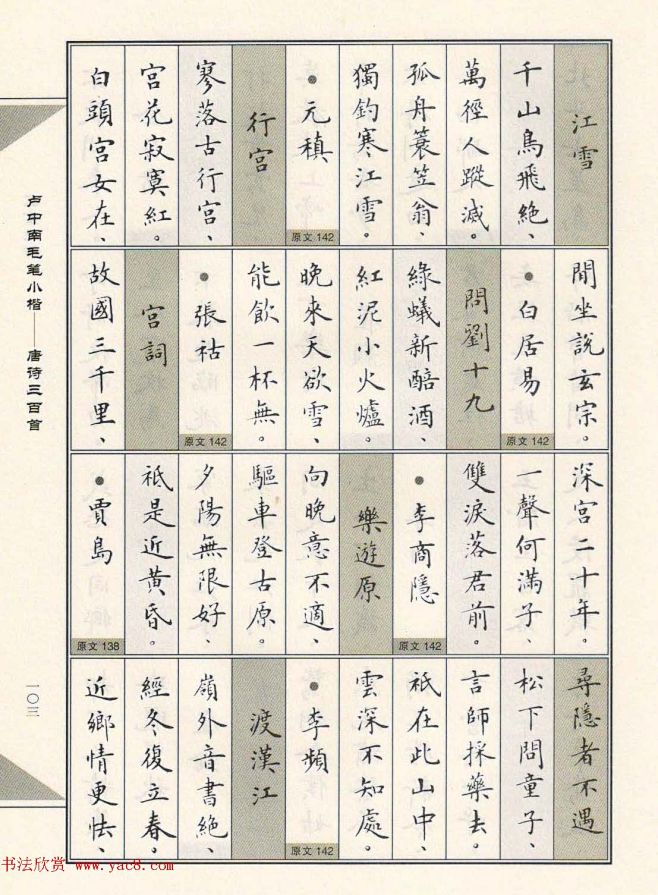 江雪
千山鳥飛絶、
萬徑人蹤滅。
孤舟簑笠翁、
獨釣寒江雪。
•元稹
原文142
行宮
寥落古行宮、
宮花寂寞紅。
白頭宮女在、
閒坐說玄宗。
•白居易
原文142
問劉十九
綠蟻新醅酒、
紅泥小火爐。
晚來天欲雪、
能飲一杯無。
•張祜
原文142
宮詞
故國三千里、
深宮二十年。
一聲何滿子、
雙淚落君前。
•李商隱
原文142
樂遊原
向晚意不適、
驅車登古原。
夕陽無限好、
祇是近黃昏。
•賈島
原文138
尋隱者不遇
松下問童子、
言師採藥去。
祇在此山中、
雲深不知處。
•李頻
原文142
渡漢江
嶺外音書絶、
經冬復立春。
近鄉情更怯、
卢中南毛笔小楷——唐诗三百首
一〇三
书法欣赏 www.yac8.com